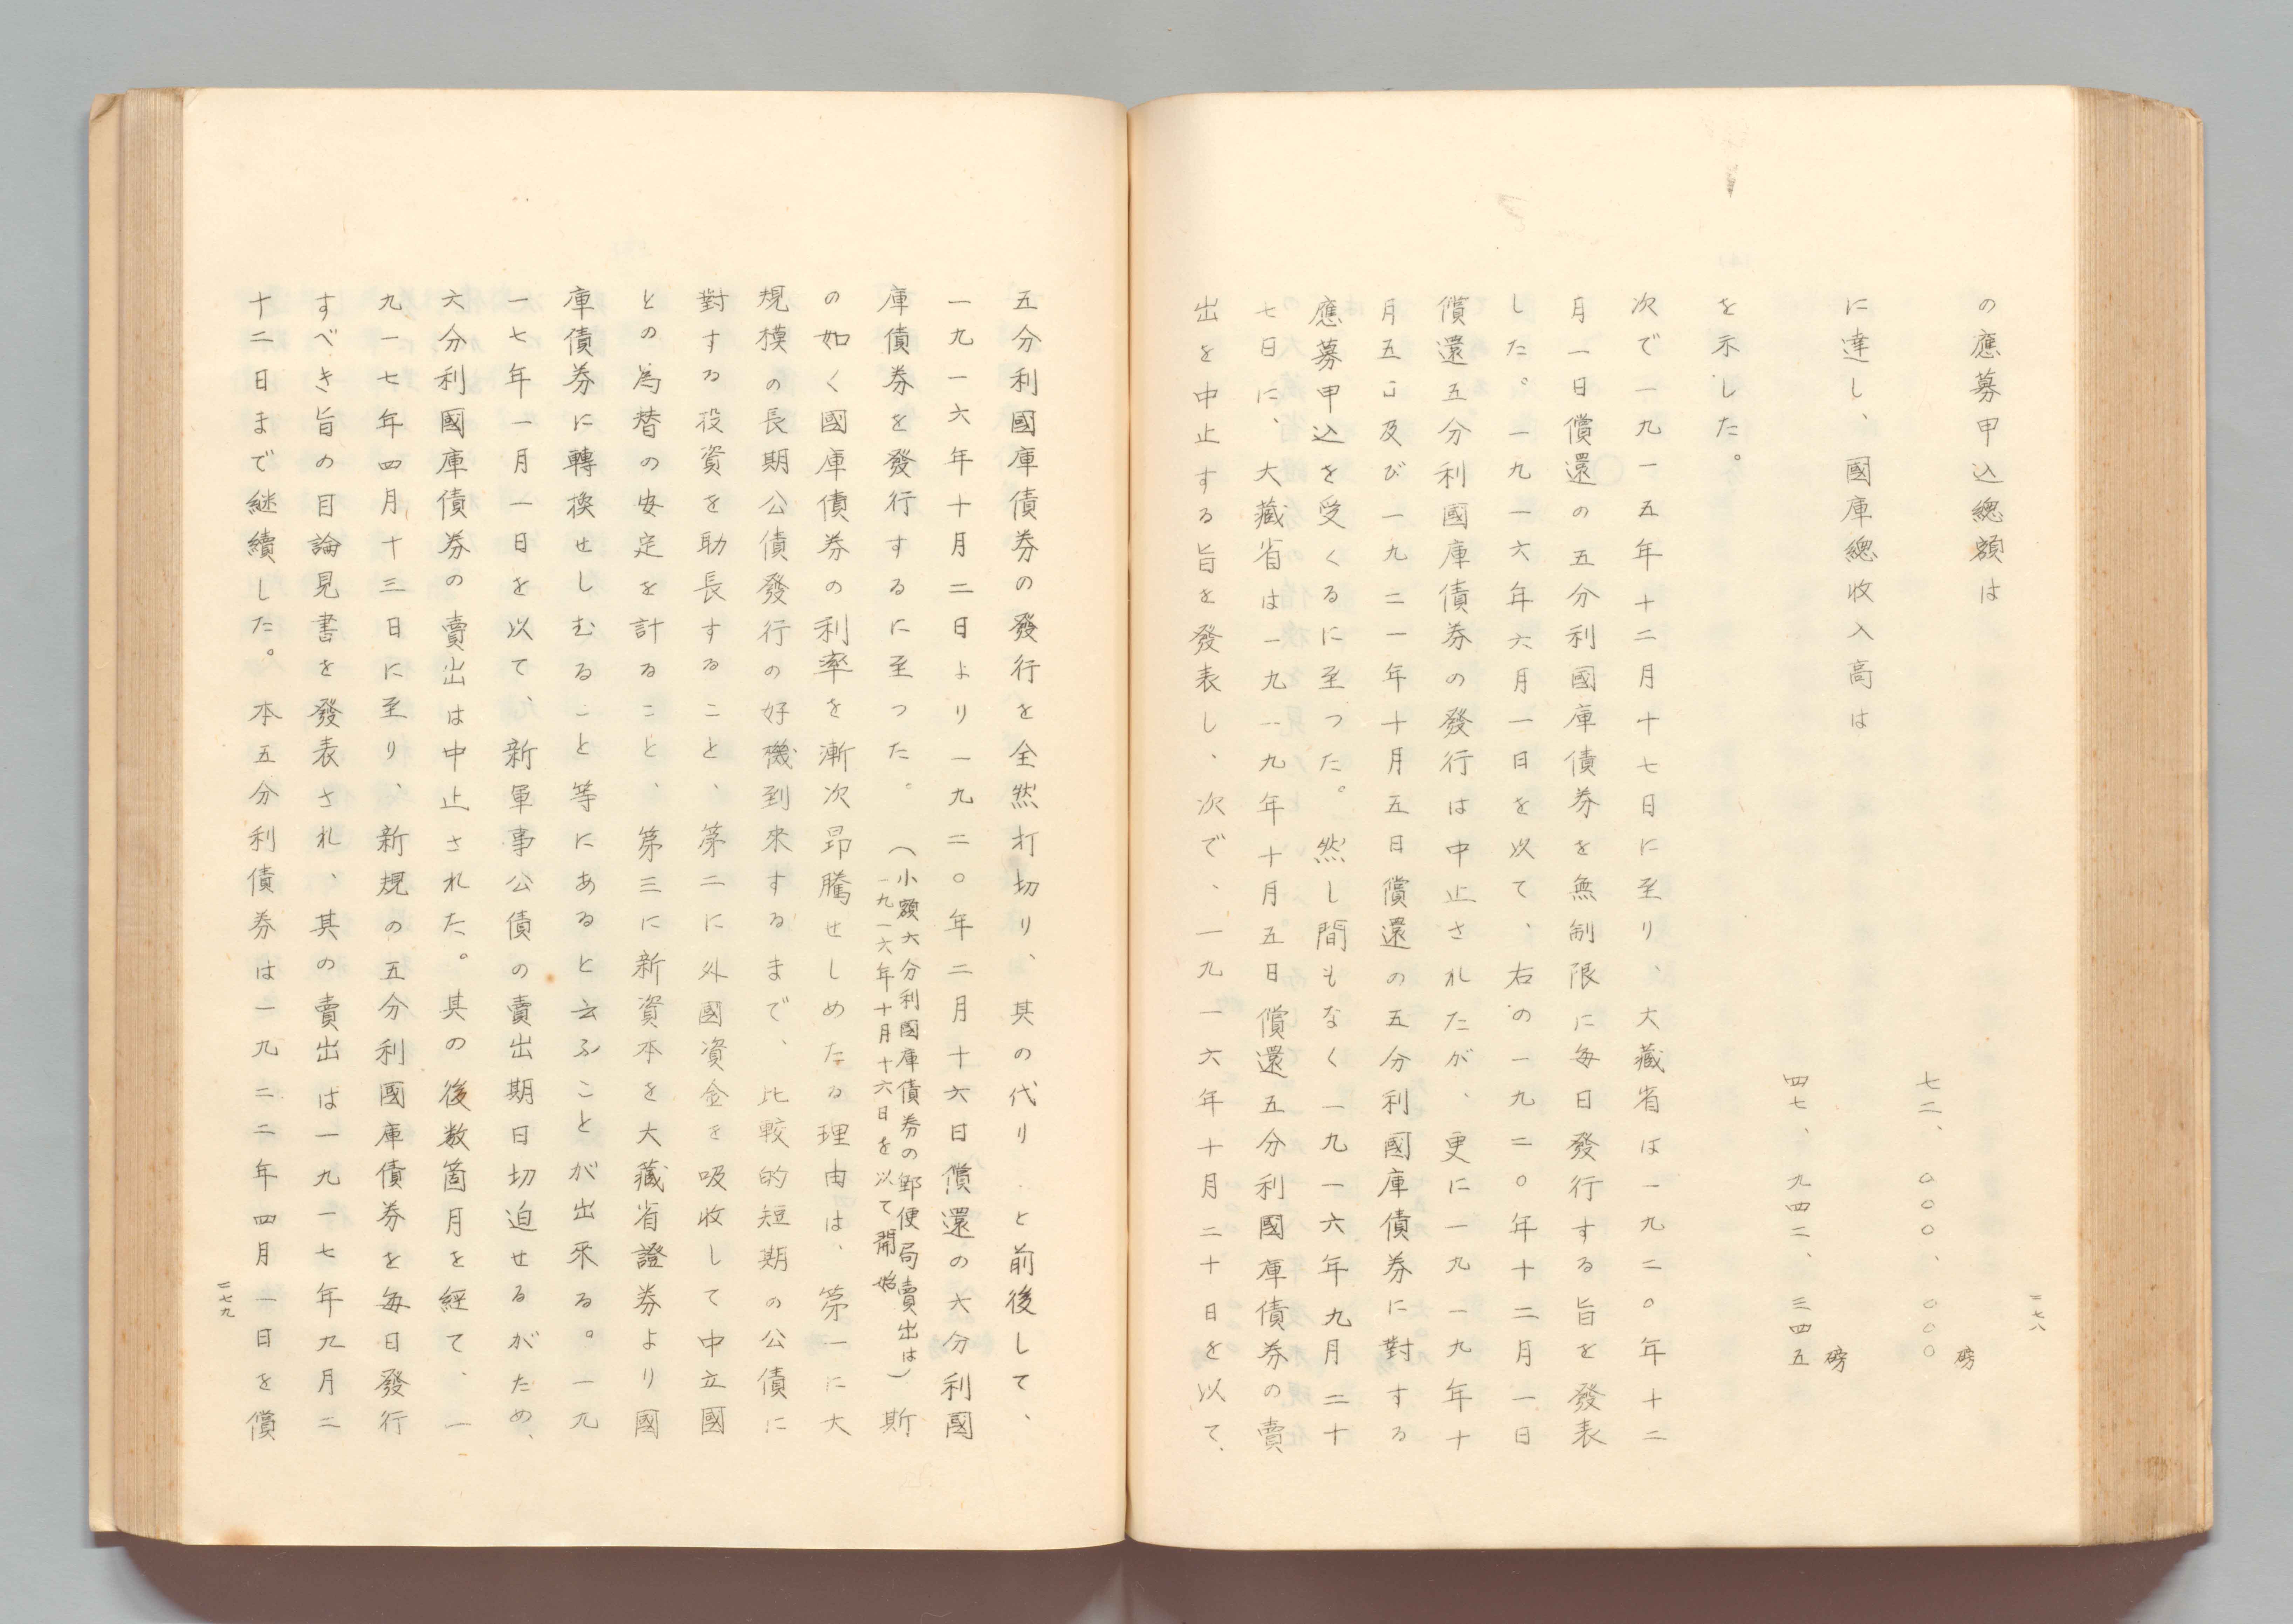 一七八
の應募申込總額は
七二、〇〇〇、〇〇〇磅
に達し、國庫總收入高は
四七、九四二、三四五磅
を示した。
次で一九一五年十二月十七日に至り、大藏省は一九二〇年十二
月一日償還の五分利國庫債券を無制限に每日發行する旨を發表
した。一九一六年六月一日を以て、右の一九二〇年十二月一日
償還五分利國庫債券の發行は中止されたが、更に一九一九年十
月五日及び一九二一年十月五日償還の五分利國庫債券に對する
應募申込を受くるに至つた。然し間もなく一九一六年九月二十
七日に、大藏省は一九一九年十月五日償還五分利國庫債券の賣
出を中止する旨を發表し、次で、一九一六年十月二十日を以て、
五分利國庫債券の發行を全然打切り、其の代り と前後して、
一九一六年十月二日より一九二〇年二月十六日償還の六分利國
庫債券を發行するに至つた。(小額六分利國庫債券の郵便局賣出は一九一六年十月十六日を以て開始)斯
の如く國庫債券の利率を漸次昂騰せしめたる理由は、第一に大
規模の長期公債發行の好機到來するまで、比較的短期の公債に
對する投資を助長すること、第二に外國資金を吸收して中立國
との為替の安定を計ること、第三に新資本を大藏省證券より國
庫債券に轉換せしむること等にあると云ふことが出來る。一九
一七年一月一日を以て、新軍事公債の賣出期日切迫せるがため、
六分利國庫債券の賣出は中止された。其の後数箇月を経て、一
九一七年四月十三日に至り、新規の五分利國庫債券を每日發行
すべき旨の目論見書を發表され、其の賣出は一九一七年九月二
十二日まで継續した。本五分利債券は一九二二年四月一日を償
一七九